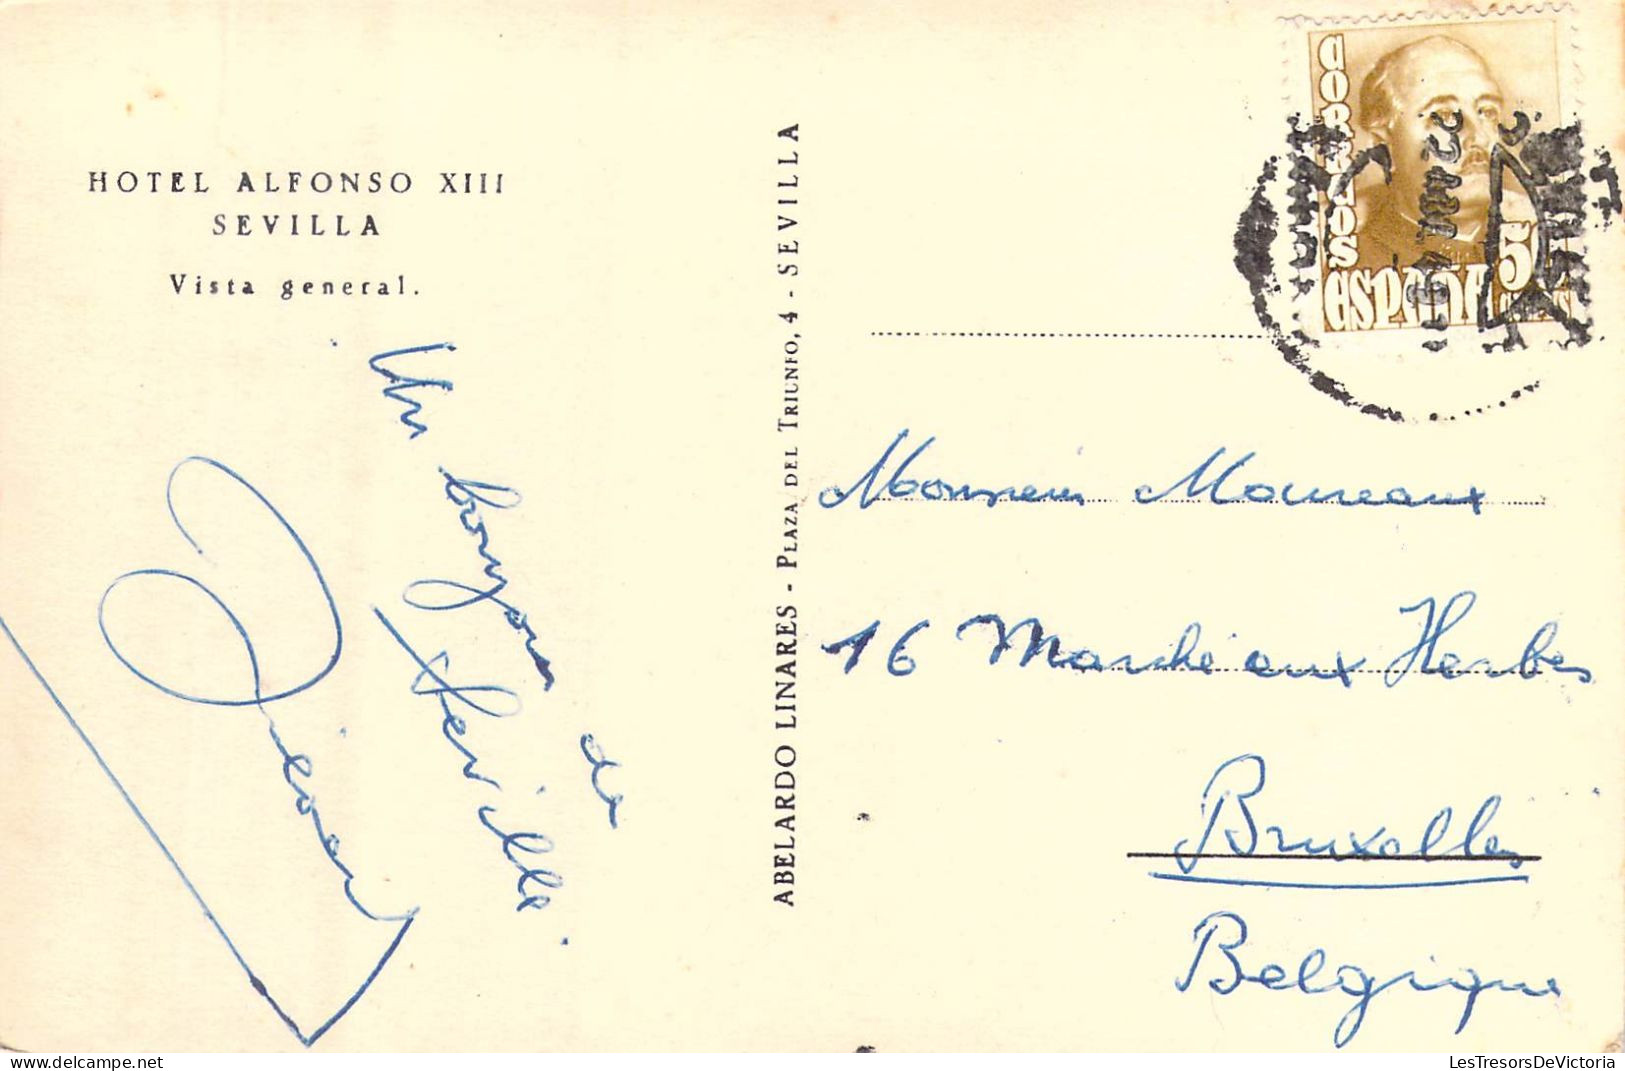 HOTEL ALFONSO XIII
SEVILLA
Vista general.
Un bonjour de
Séville.
ABELARDO LINARES - PLAZA DEL TRIUNFO, 4 - SEVILLA
CORREOS
ESPAÑA
22
Monsieur Moureaux
16 Marché aux Herbes
Bruxelles
Belgique
LesTresorsDeVictoria
https://www.delcampe.net